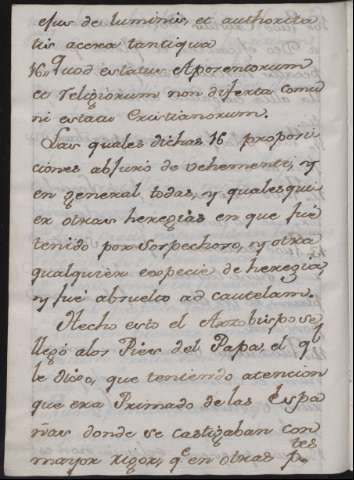 ejus de luminis, et authorita
tis acera tantiqua
16. Quod estatus Aporentorum
et religiorum non diferta comu
ni estatu Cristianorum.
Las quales dichas 16 proposi
ciones abjuró de vehementi, y
en general todas, y qualesqui
er otras heregias en que fué
tenido por Sospechoso, y otra
qualquier especie de heregia
y fué absuelto ad cautelam.
Hecho esto el Arzobispo se
llegó a los Pies del Papa el ql
le dixo, que teniendo atencion
que era Primado de las Espa
ñas donde se castigaban con
mayor rigor, qe en otras ptes